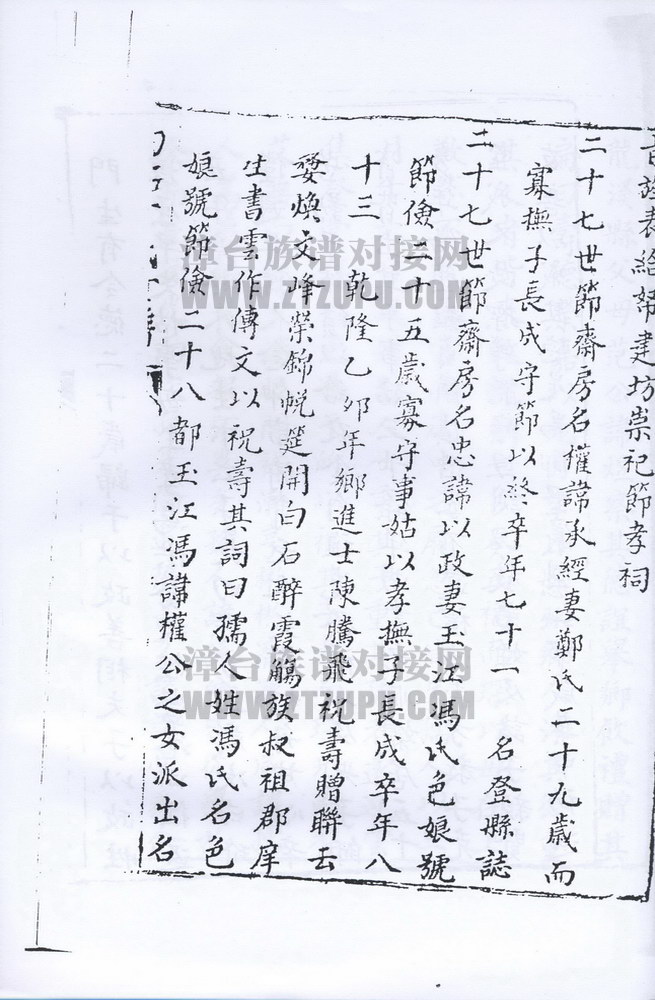 旌表給帑建坊崇祀節孝祠
二十七世節齋房名權諱承經妻鄭氏二十九歲而
寡撫子長成守節以終卒年七十一　名登縣誌
二十七世節齋房名忠諱以政妻玉江馮氏色娘號
節儉二十五歲寡守事姑以孝撫子長成卒年八
十三　乾隆乙卯年鄉進士陳騰飛祝壽贈聯云
婺煥文峰榮錦帨筵開白石醉霞觴族叔祖郡庠
生書雲作傳文以祝壽其詞曰孺人姓馮氏名色
娘號節儉二十八都玉江馮諱權公之女派出名
漳台族谱对接网
WWW.ZTZUPU.COM
漳台族谱对接网
WWW.ZTZUPU.COM